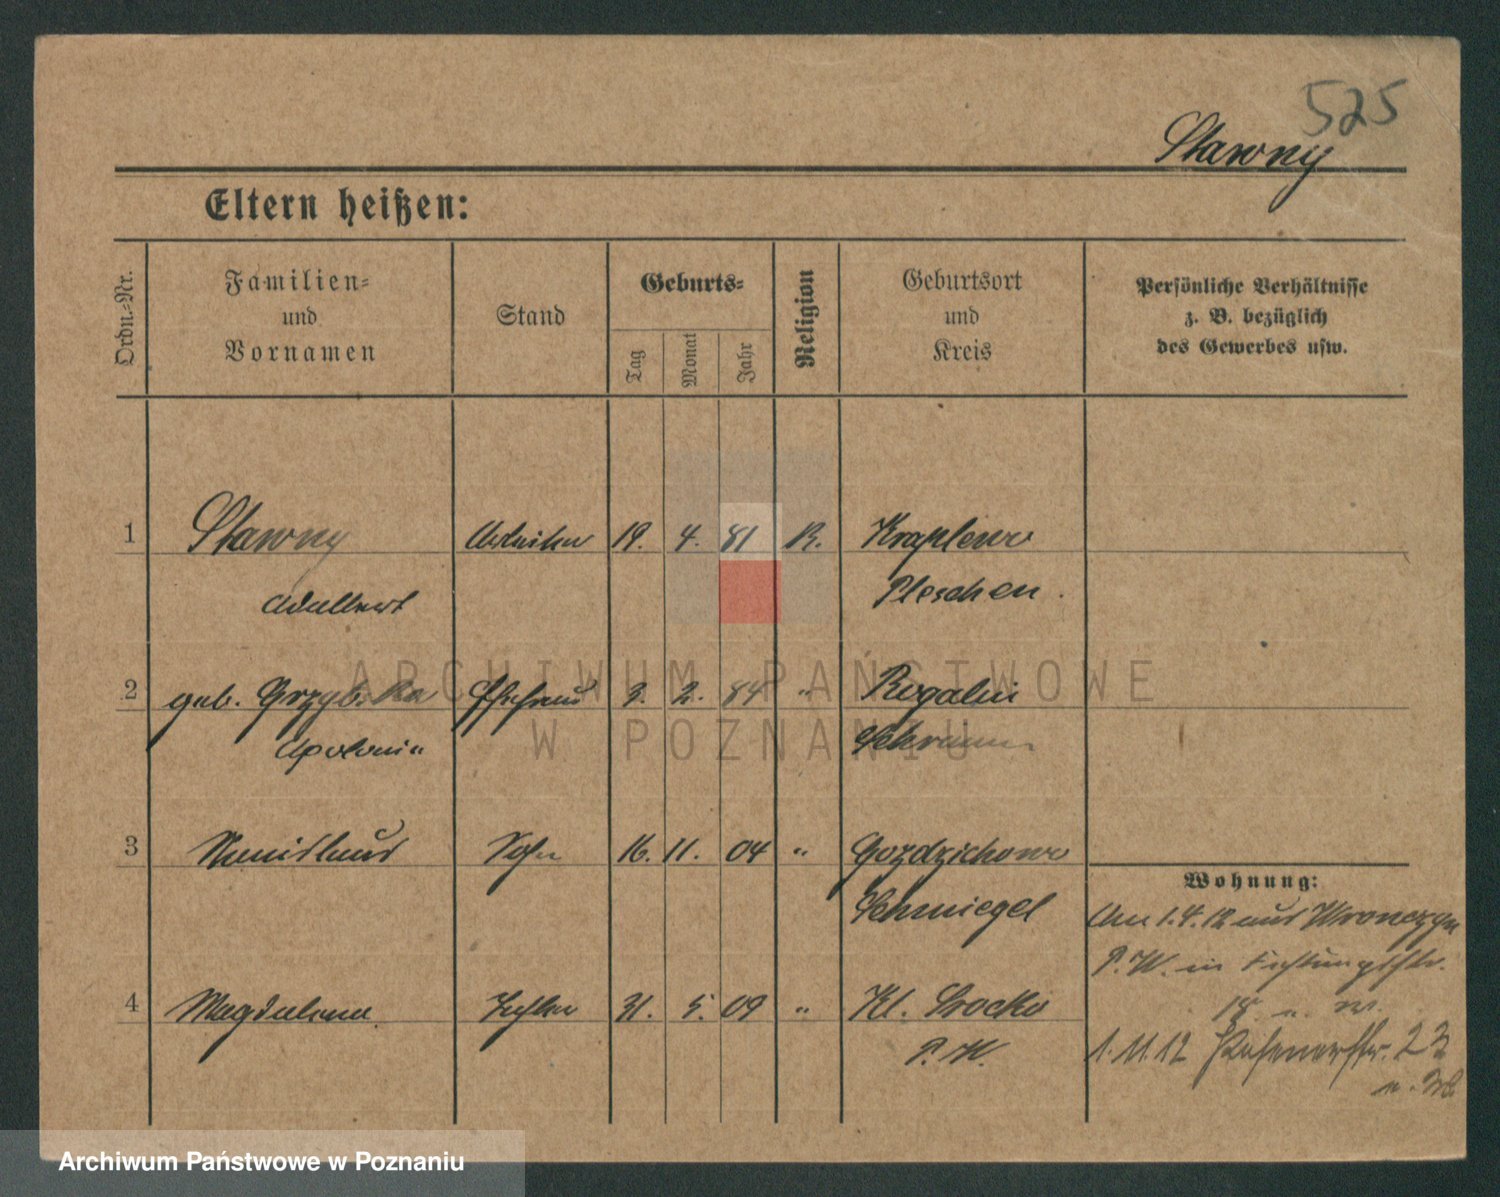 525
Stawny
Eltern heißen:
Ordn.-Nr.
Familien-
und
Vornamen
Stand
Geburts-
Tag
Monat
Jahr
Religion
Geburtsort
und
Kreis
Persönliche Verhältnisse
z. B. bezüglich
des Gewerbes usw.
1 Stawny Arbeiter 19. 4. 81 R. Kraplewo
Adalbert Pleschen.
2 geb. Grzybska Ehefrau 9. 2. 84 " Rogalin
Apolonia Schrimm
3 Stanislaus Sohn 16. 11. 04 " Gozdzichowo
Schmiegel
4 Magdalena Tochter 31. 5. 09 " Kl. Srocko
P. W.
Wohnung:
Am 1.4.12 aus Wronczyn
P. W. in
18
1.11.12 Posenerstr. 23
ARCHIWUM PAŃSTWOWE
W POZNANIU
Archiwum Państwowe w Poznaniu